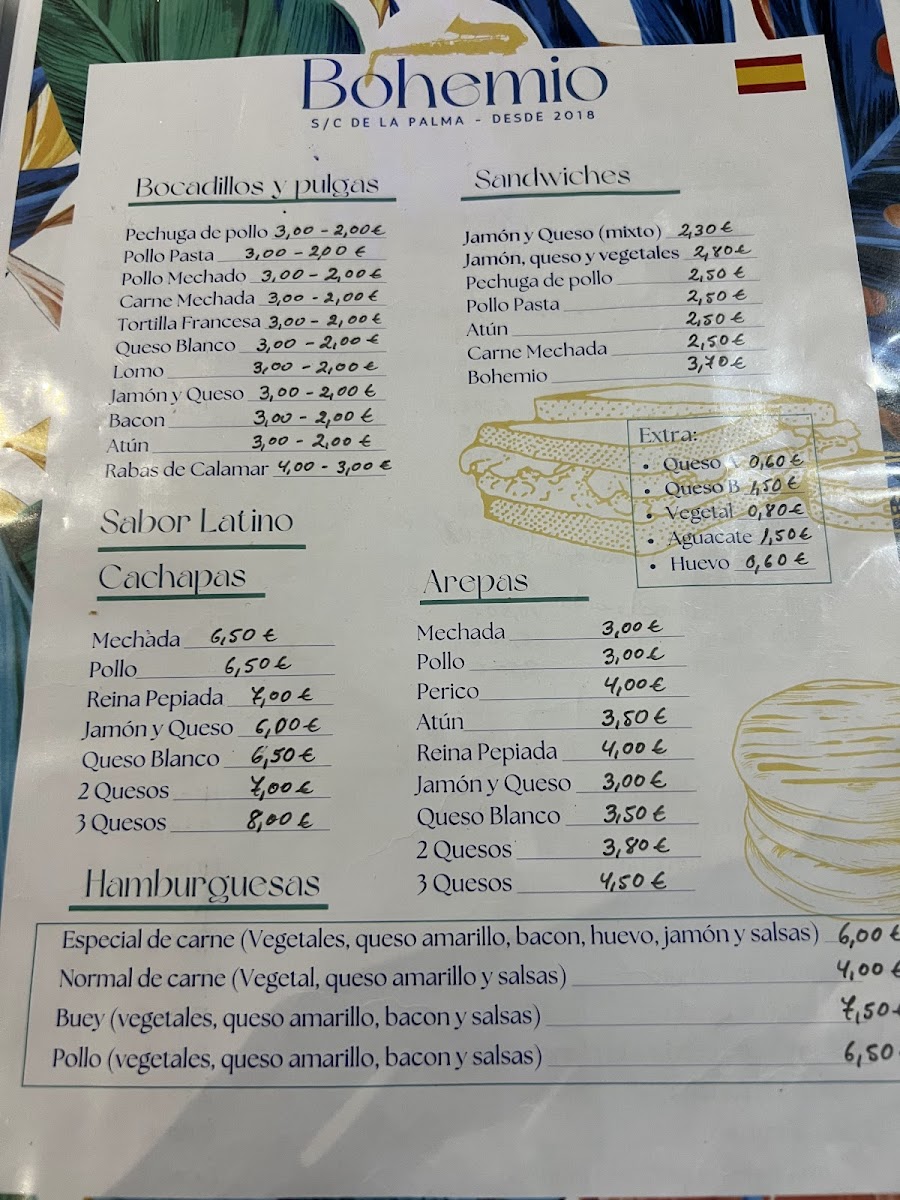 Bohemio
S/C DE LA PALMA - DESDE 2018
Bocadillos y pulgas
Pechuga de pollo 3,00 - 2,00€
Pollo Pasta 3,00 - 2,00 €
Pollo Mechado 3,00 - 2,00€
Carne Mechada 3,00 - 2,00€
Tortilla Francesa 3,00 - 2,00€
Queso Blanco 3,00 - 2,00€
Lomo 3,00 - 2,00€
Jamón y Queso 3,00 - 2,00€
Bacon 3,00 - 2,00€
Atún 3,00 - 2,00€
Rabas de Calamar 4,00 - 3,00€
Sandwiches
Jamón y Queso (mixto) 2,30€
Jamón, queso y vegetales 2,80€
Pechuga de pollo 2,50€
Pollo Pasta 2,50€
Atún 2,50€
Carne Mechada 2,50€
Bohemio 3,70€
Extra:
• Queso A 0,60€
• Queso B 1,50€
• Vegetal 0,80€
• Aguacate 1,50€
• Huevo 0,60€
Sabor Latino
Cachapas
Mechada 6,50€
Pollo 6,50€
Reina Pepiada 7,00€
Jamón y Queso 6,00€
Queso Blanco 6,50€
2 Quesos 7,00€
3 Quesos 8,00€
Arepas
Mechada 3,00€
Pollo 3,00€
Perico 4,00€
Atún 3,50€
Reina Pepiada 4,00€
Jamón y Queso 3,00€
Queso Blanco 3,50€
2 Quesos 3,80€
3 Quesos 4,50€
Hamburguesas
Especial de carne (Vegetales, queso amarillo, bacon, huevo, jamón y salsas) 6,00€
Normal de carne (Vegetal, queso amarillo y salsas) 4,00€
Buey (vegetales, queso amarillo, bacon y salsas) 7,50€
Pollo (vegetales, queso amarillo, bacon y salsas) 6,50